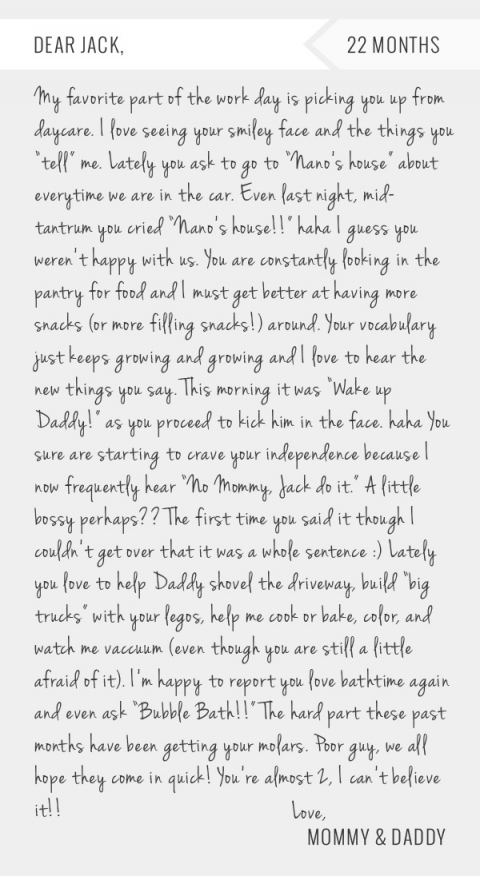 DEAR JACK,
22 MONTHS
My favorite part of the work day is picking you up from
daycare. I love seeing your smiley face and the things you
"tell" me. Lately you ask to go to "Nano's house" about
everytime we are in the car. Even last night, mid-
tantrum you cried "Nano's house!!" haha I guess you
weren't happy with us. You are constantly looking in the
pantry for food and I must get better at having more
snacks (or more filling snacks!) around. Your vocabulary
just keeps growing and growing and I love to hear the
new things you say. This morning it was "Wake up
Daddy!" as you proceed to kick him in the face. haha You
sure are starting to crave your independence because I
now frequently hear "No Mommy, Jack do it." A little
bossy perhaps?? The first time you said it though I
couldn't get over that it was a whole sentence :) Lately
you love to help Daddy shovel the driveway, build "big
trucks" with your legos, help me cook or bake, color, and
watch me vaccuum (even though you are still a little
afraid of it). I'm happy to report you love bathtime again
and even ask "Bubble Bath!!" The hard part these past
months have been getting your molars. Poor guy, we all
hope they come in quick! You're almost 2, I can't believe
it!!
Love,
MOMMY & DADDY